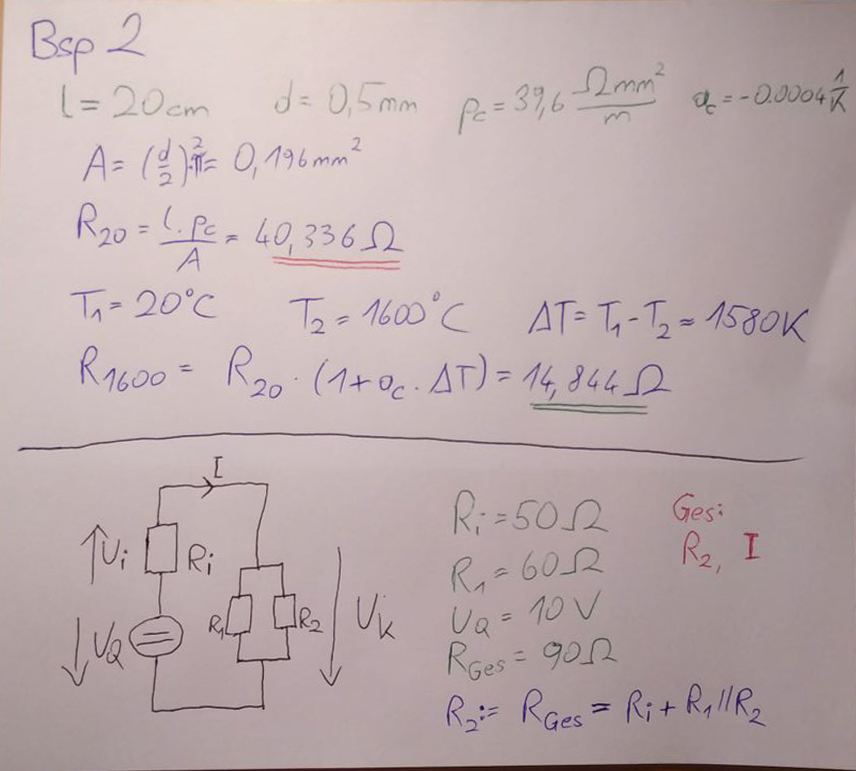 Bsp 2
l = 20cm d = 0,5mm ρc = 39,6 Ωmm²/m αc = -0.0004 1/K
A = (d/2)²·π = 0,196mm²
R20 = l·ρc/A = 40,336Ω
T1 = 20°C T2 = 1600°C ΔT = T1 - T2 ≈ 1580K
R1600 = R20 · (1 + αc · ΔT) = 14,844Ω
I
Ui Ri
UQ R1 R2 Uk
Ri = 50Ω
R1 = 60Ω
UQ = 10V
RGes = 90Ω
Ges:
R2, I
R2 := RGes = Ri + R1//R2